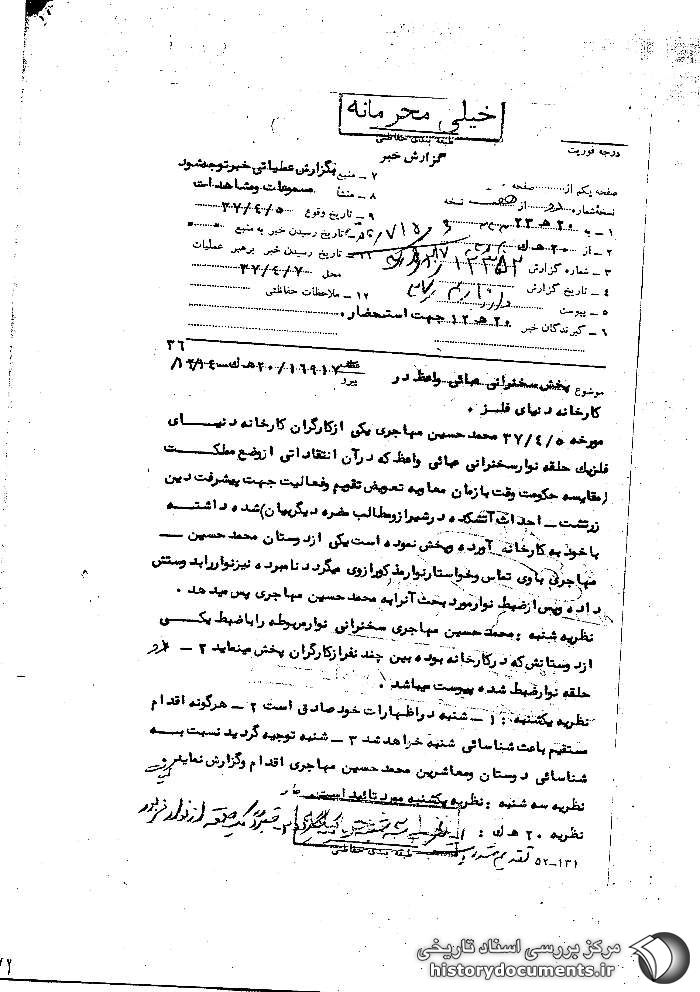 خیلی محرمانه
طبقه بندی حفاظتی
گزارش خبر
درجه فوریت
صفحه یکم از صفحه
نسخه شماره از نسخه
۱ ـ به ۲۰ هـ ۲۳
۲ ـ از ۲۰ هـ ك
۳ ـ شماره گزارش
۴ ـ تاریخ گزارش
۵ ـ پیوست
۶ ـ گیرندگان خبر ۲۰ هـ ۱۲ جهت استحضار .
۷ ـ منبع بگزارش عملیاتی خبر توجه شود
۸ ـ منشأ مسموعات و مشاهدات
۹ ـ تاریخ وقوع ۳۷/۴/۵
تاریخ رسیدن خبر به منبع
۱۱ ـ تاریخ رسیدن خبر برهبر عملیات
محل ۳۷/۴/۷
۱۲ ـ ملاحظات حفاظتی
۳۶
موضوع پخش سخنرانی عبائی واعظ در
کارخانه دنیای فلز .
مورخه ۳۷/۴/۵ محمد حسین مهاجری یکی از کارگران کارخانه دنیـــای
فلز یك حلقه نوار سخنرانی عبائی واعظ که در آن انتقاداتی از وضع مملکت
(مقایسه حکومت وقت با زمان معاویه تعویض تقویم و فعالیت جهت پیشرفت دین
زرتشت ـ احداث آتشکده در شیراز و مطالب مضره دیگر بیان) شده داشتـــه
با خود به کارخانه آورده و پخش نموده است یکی از دوستان محمد حسین ـــ
مهاجری با وی تماس و خواستار نوار مذکور از وی میگردد نامبرده نیز نوار را بدوستش
داده و پس از ضبط نوار مورد بحث آنرا به محمد حسین مهاجری پس میدهد .
نظریه شنبه : محمد حسین مهاجری سخنرانی نوار مربوطه را با ضبط یکـــی
از دوستانش که در کارخانه بوده بین چند نفر از کارگران پخش مینماید ۲ ـ
حلقه نوار ضبط شده پیوست میباشد .
نظریه یکشنبه : ۱ ـ شنبه در اظهارات خود صادق است ۲ ـ هرگونه اقدام
مستقیم باعث شناسائی شنبه خواهد شد ۳ ـ شنبه توجیه گردید نسبت بـــه
شناسائی دوستان و معاشرین محمد حسین مهاجری اقدام و گزارش نماید
نظریه سه شنبه : نظریه یکشنبه مورد تائید است .
نظریه ۲۰ هـ ك :
طبقه بندی حفاظتی
۵۲ـ۱۳۱
مرکز بررسی اسناد تاریخی
historydocuments.ir